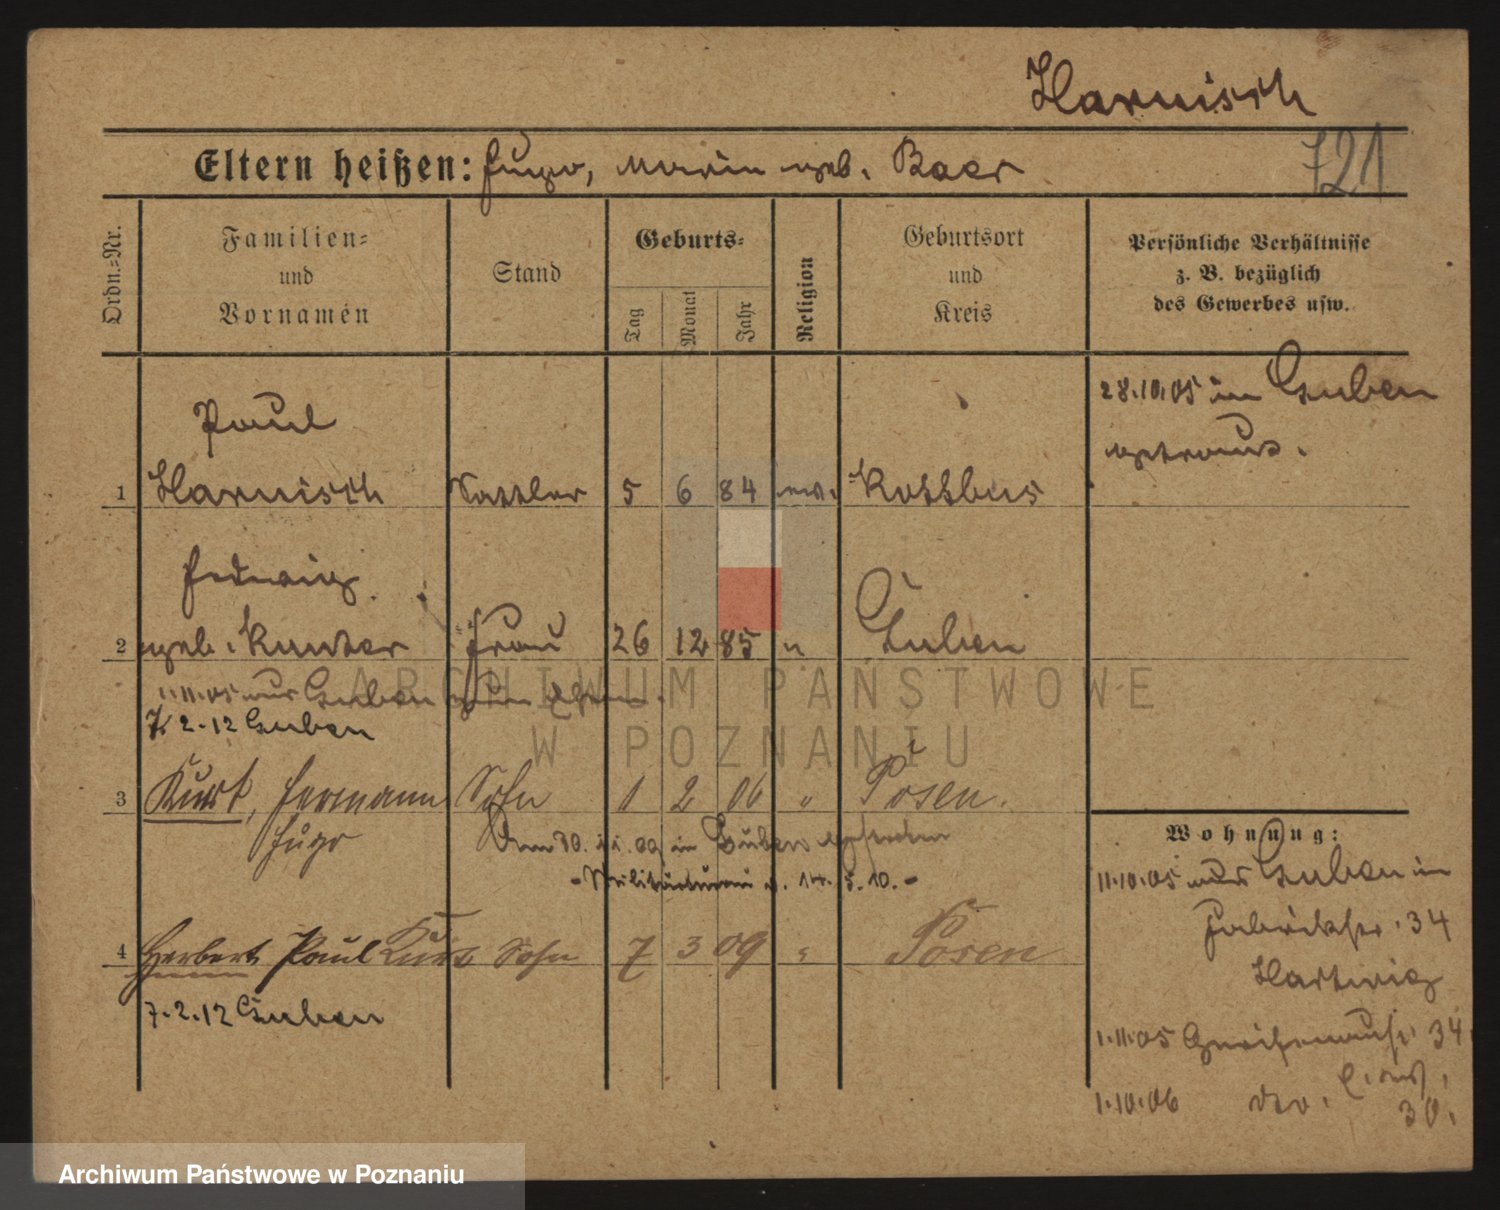 Harnisch
721
Eltern heißen: Hugo, Marie geb. Baer
Ordn.=Nr.
Familien=
und
Vornamen
Stand
Geburts=
Tag
Monat
Jahr
Religion
Geburtsort
und
Kreis
Persönliche Verhältnisse
z. B. bezüglich
des Gewerbes usw.
28.10.05 in Guben
getraut.
Paul
1 Harnisch Sattler 5 6 84 ev. Kottbus
Hedwig
2 geb. Kunter Frau 26 12 85 " Guben
1.11.05 aus Guben zum
7. 2. 12 Guben
3 Kurt, Hermann Sohn 1 2 06 " Posen.
Hugo
30. 11. 09 in Guben
5. 10. -
4 Herbert Paul Kurt Sohn 7 3 09 " Posen
7. 2. 12 Guben
Wohnung:
11.10.05 aus Guben in
Fabrikstr. 34
Hartwig
1.11.05 Gneisenaustr. 34
1.10.06 30.
ARCHIWUM PAŃSTWOWE
W POZNANIU
Archiwum Państwowe w Poznaniu